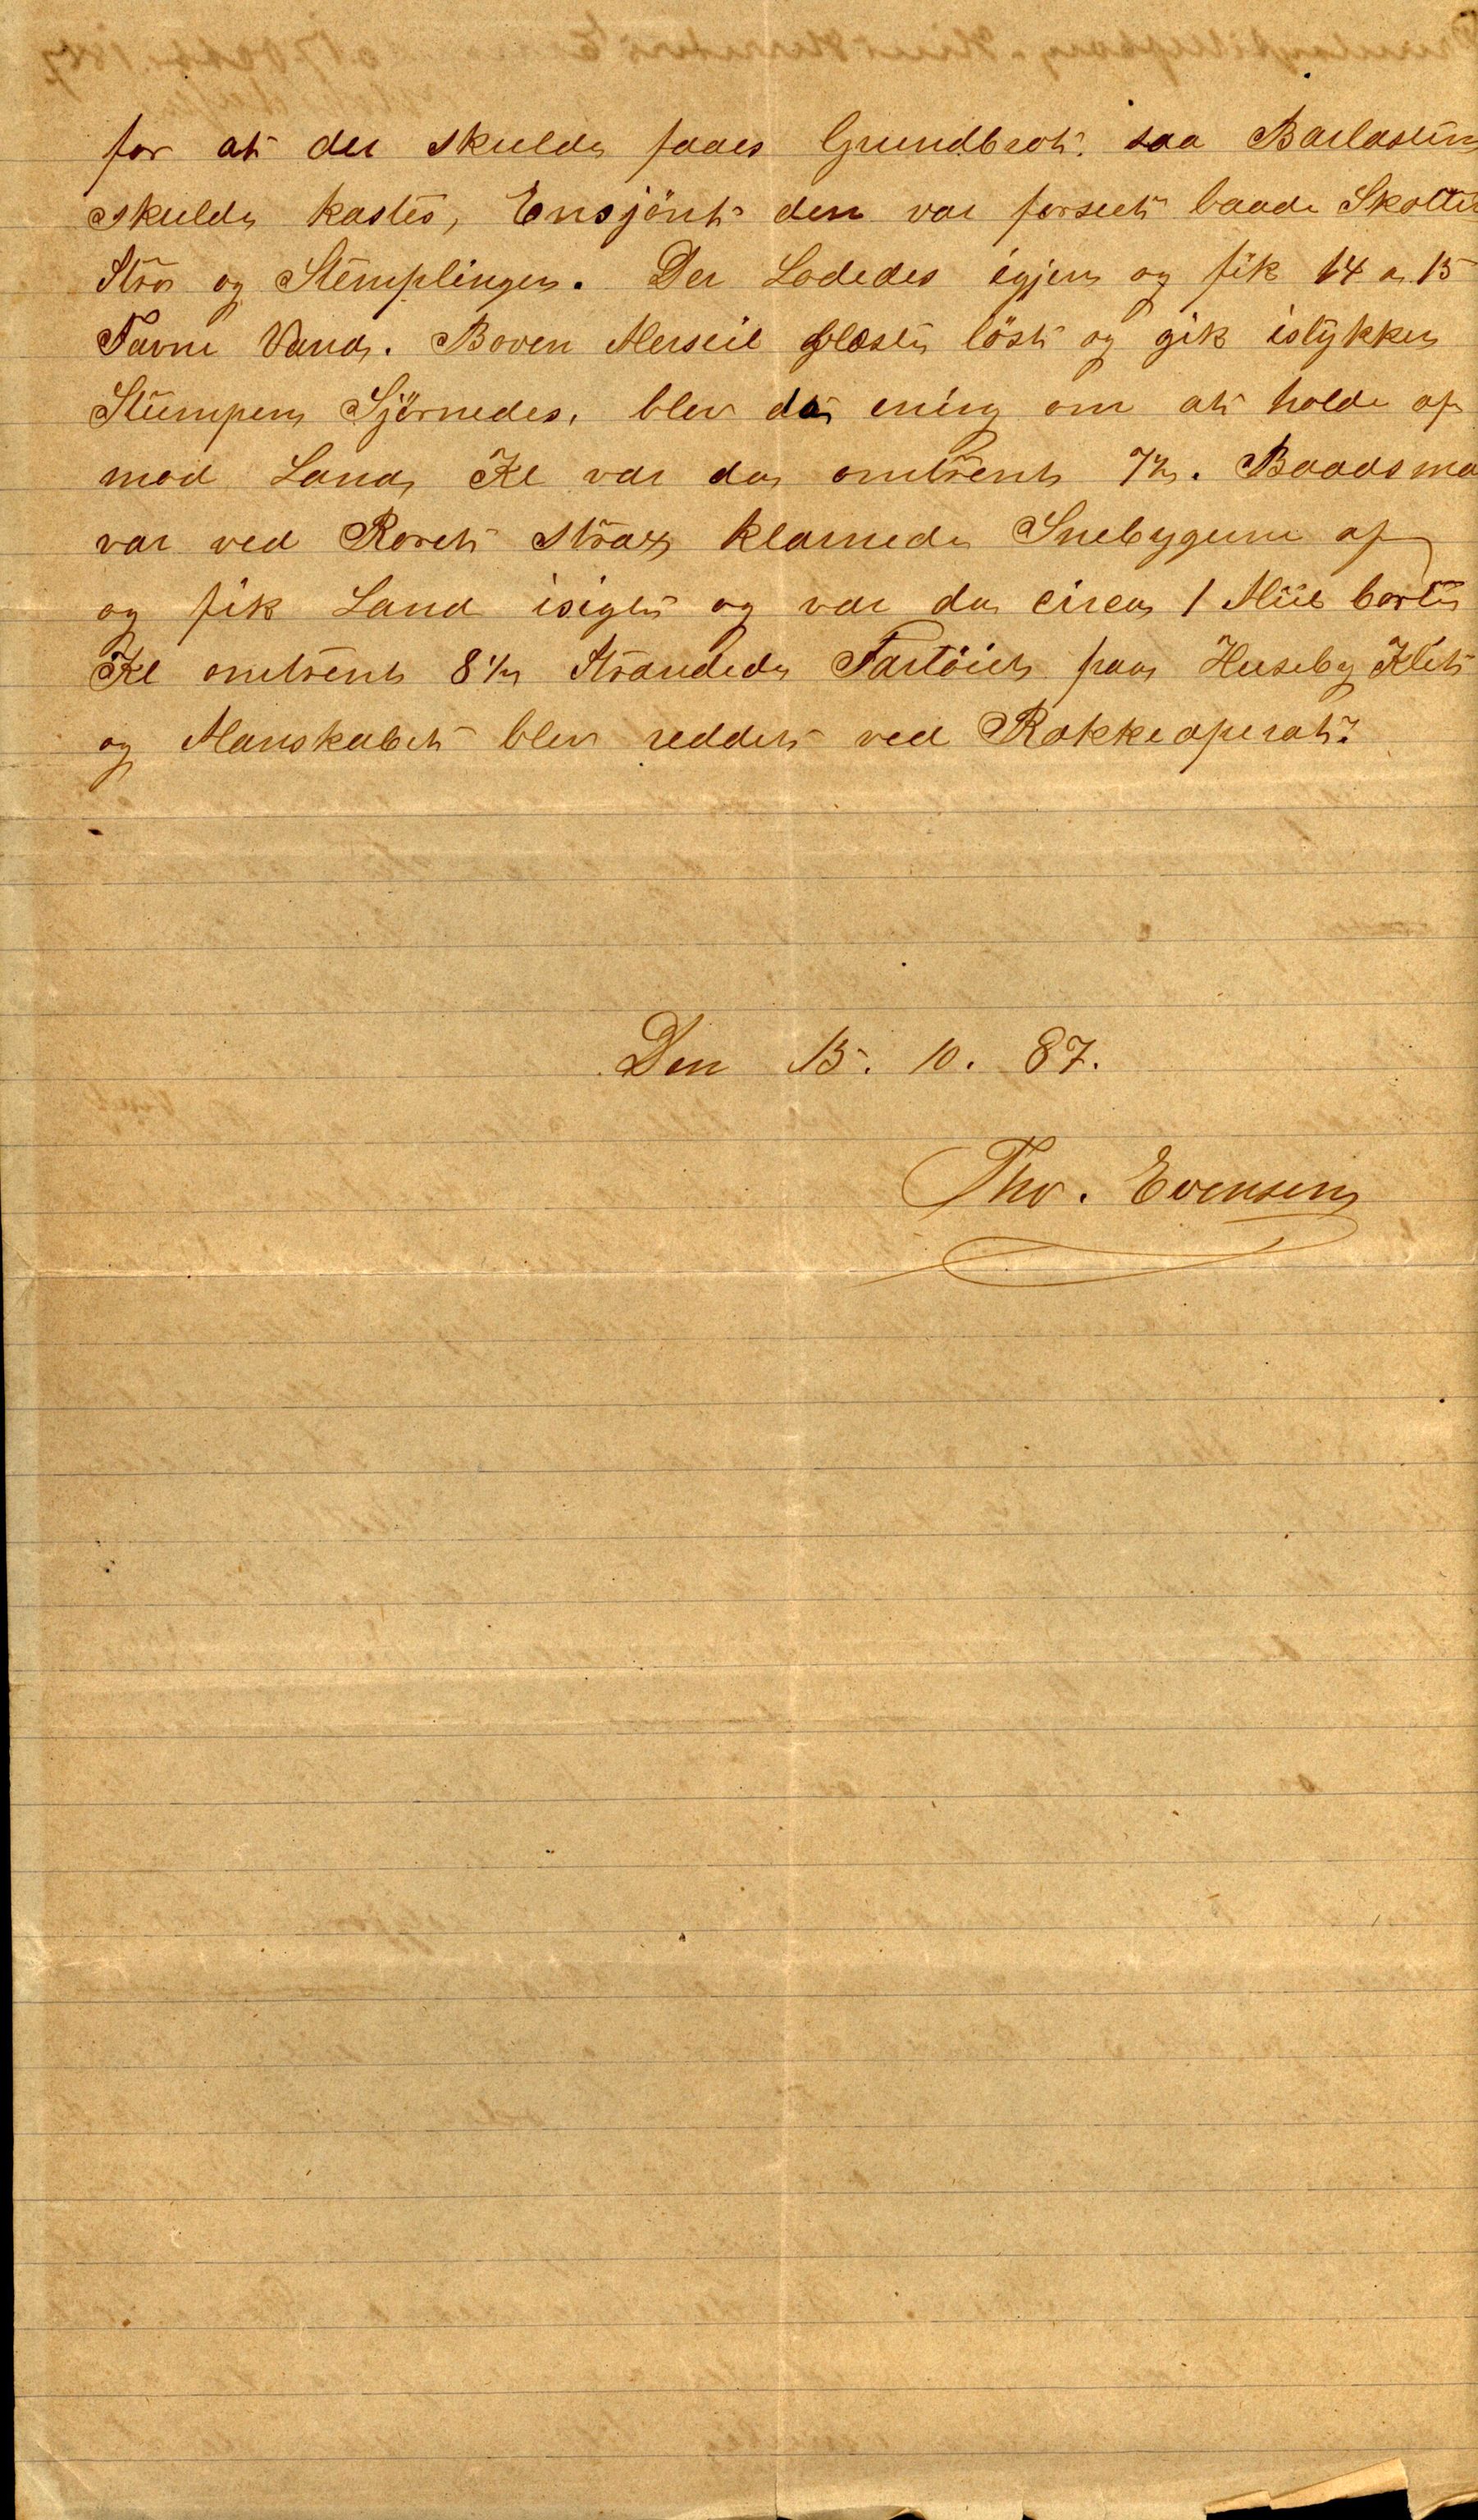 for at der skulde faaes Grundbrot. saa Barlasten
skulde kastes, Ensjönt den var forseet baade Skotter
Strø og Stemplinger. Der Lodedes igjen og fik 14 a 15
Favne Vand. Boven Merseil blæste löst og gik istykker
Stumpen Sjörnedes, blev da enig om at holde af
mod Land, Kl var da omtrent 7½. Baadsma
var ved Roret strax klarnede Snebygerne af
og fik Land isigte og var da circa 1 Miil borte
Kl omtrent 8½ Strandede Fartöiet paa Huseby Klit
og Manskabet blev reddet ved Rakkeaperat.
Den 15. 10. 87.
Tho. Evensen